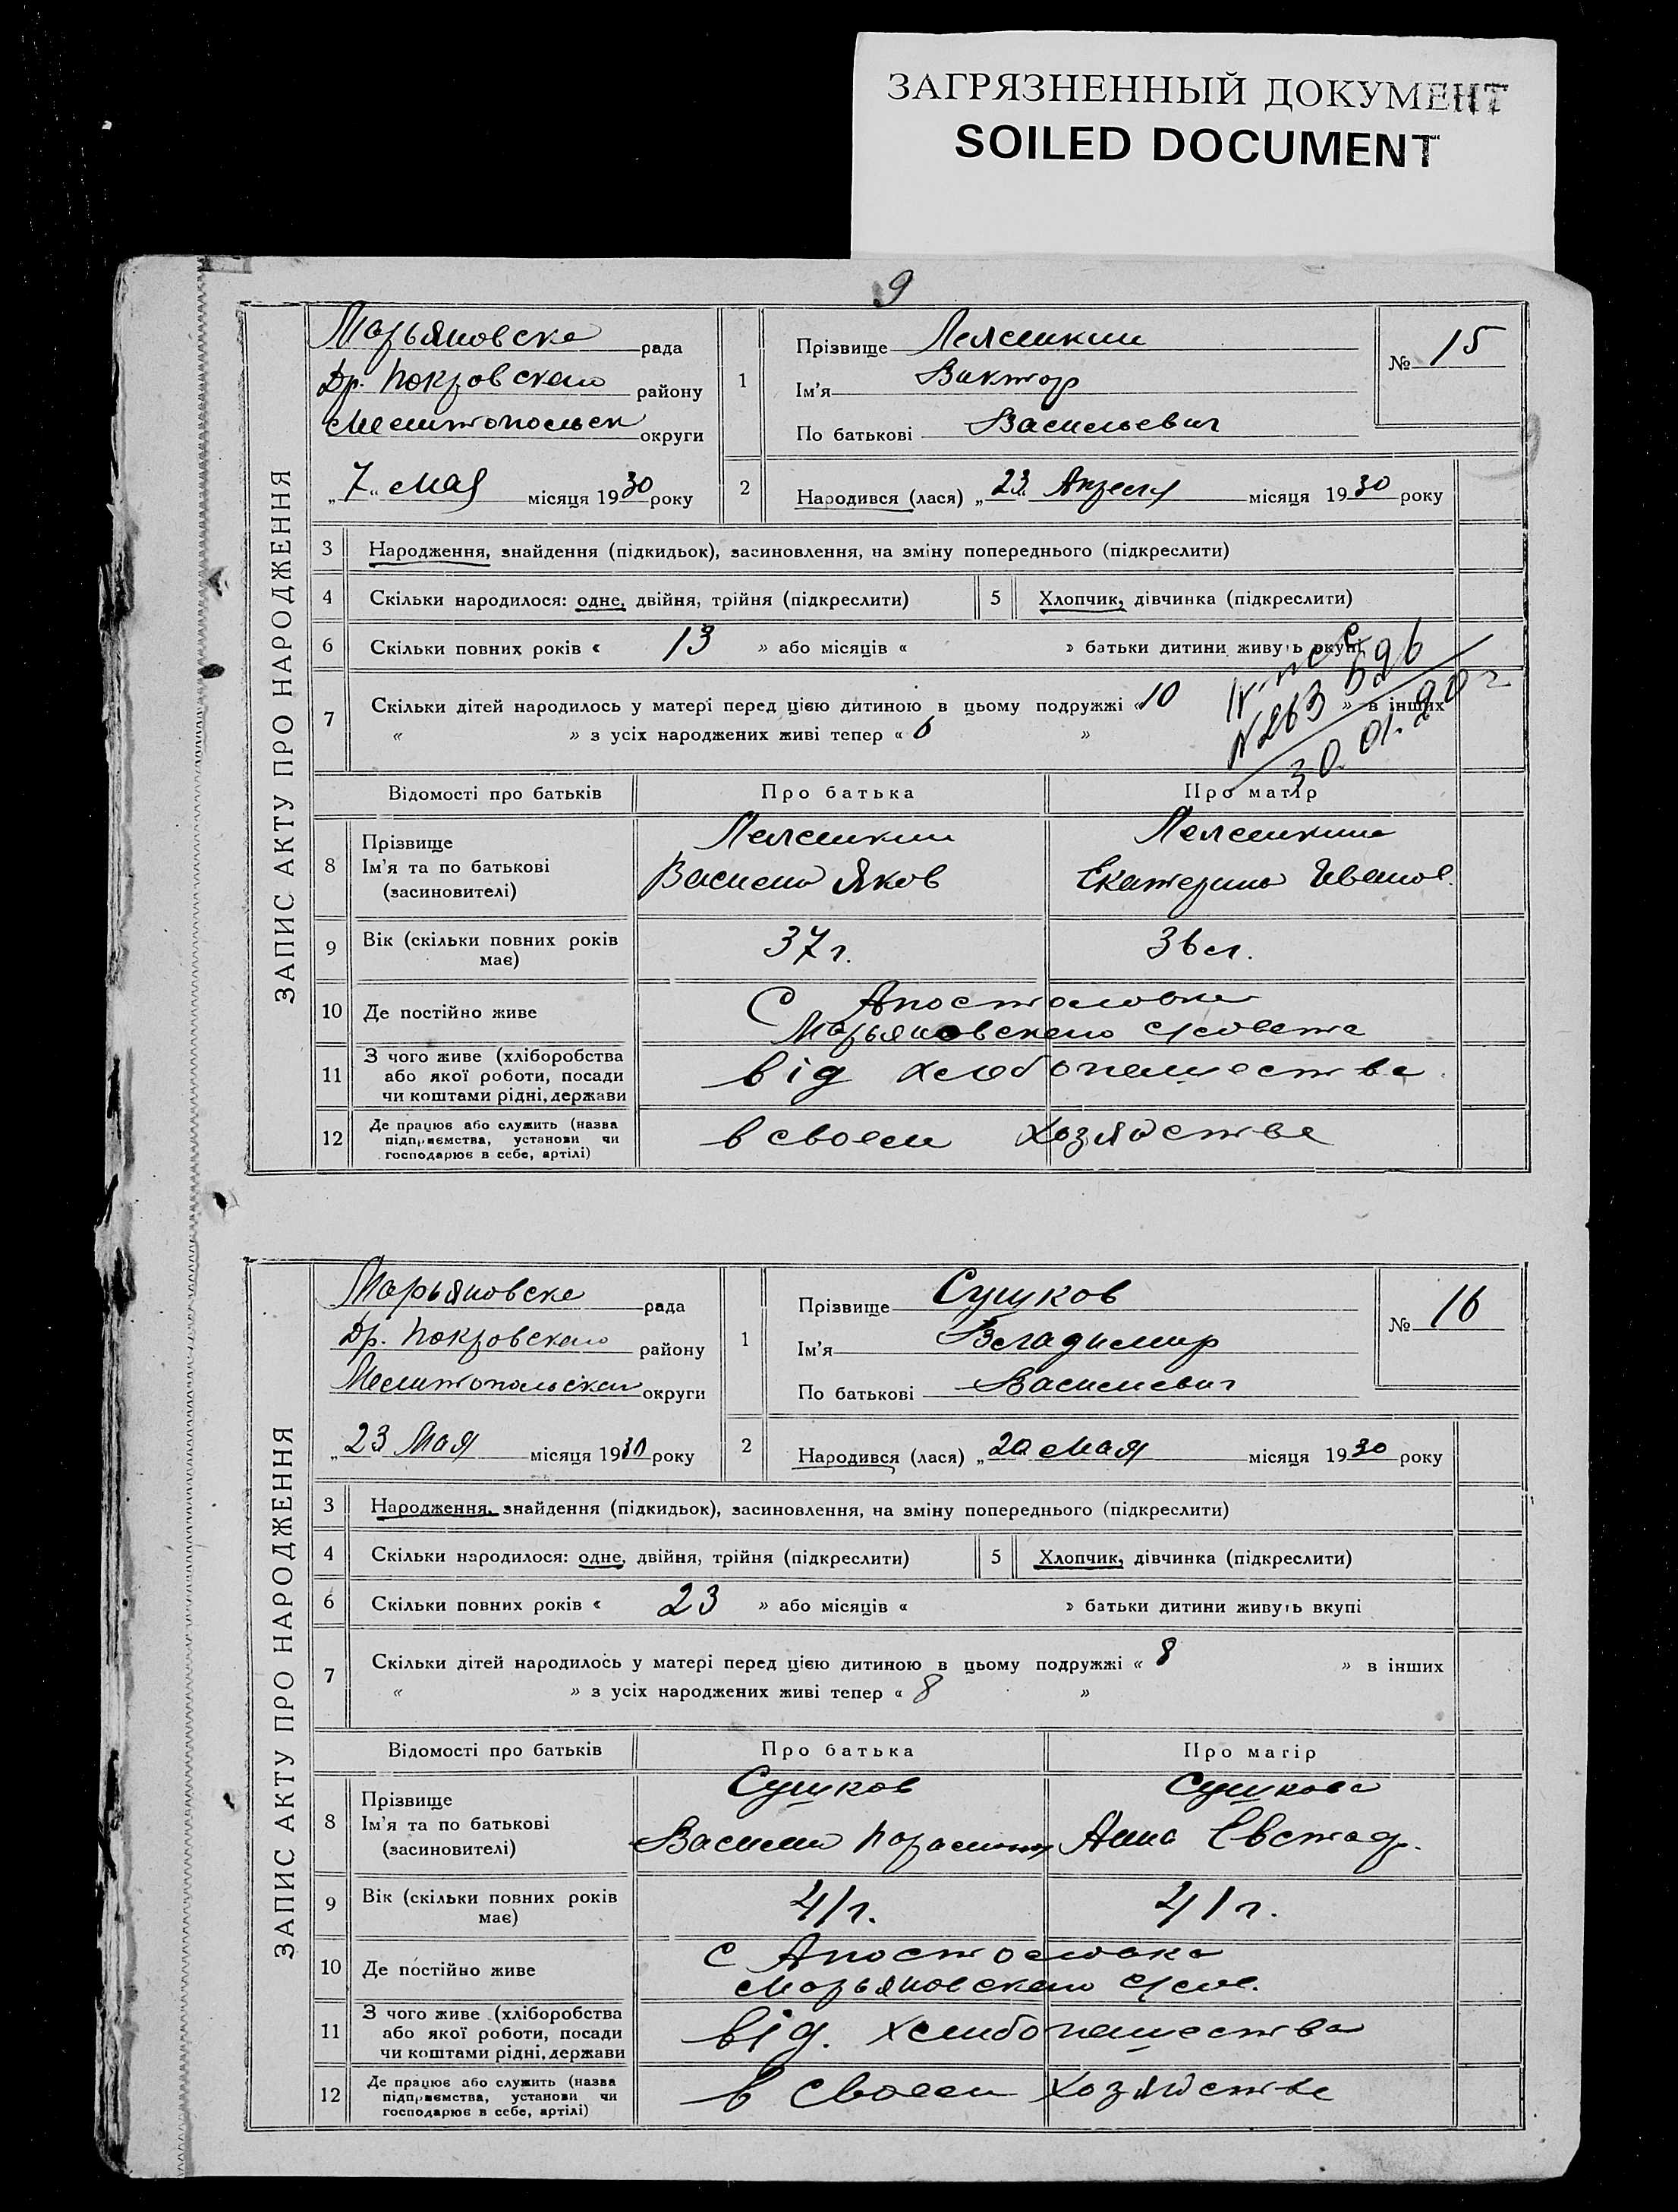 ЗАГРЯЗНЕННЫЙ ДОКУМЕНТ
SOILED DOCUMENT
9
ЗАПИС АКТУ ПРО НАРОДЖЕННЯ
Марьяновска рада
Др. Покровского району
Мелитопольск округи
„7“ мая місяця 1930 року
1
Прізвище
Ім'я Виктор
По батькові Васильевич
№ 15
2 Народився (лася) „23“ Апреля місяця 1930 року
3 Народження, знайдення (підкидьок), засиновлення, на зміну попереднього (підкреслити)
4 Скільки народилося: одне, двійня, трійня (підкреслити)
5 Хлопчик, дівчинка (підкреслити)
6 Скільки повних років « 13 » або місяців « » батьки дитини живуть вкупі
7 Скільки дітей народилось у матері перед цією дитиною в цьому подружжі « 10 » в інших
« » з усіх народжених живі тепер « 6 »
Відомості про батьків Про батька Про матір
8 Прізвище
Ім'я та по батькові Василий Яков Екатерина Иванов.
(засиновителі)
9 Вік (скільки повних років має) 37 г. 36 л.
10 Де постійно живе С Апостоловка
Марьяновского с/совета
11 З чого живе (хліборобства або якої роботи, посади чи коштами рідні, держави від хлебопашества
12 Де працює або служить (назва підприємства, установи чи господарює в себе, артілі) в своем хозяйстве
ЗАПИС АКТУ ПРО НАРОДЖЕННЯ
Марьяновска рада
Др. Покровского району
Мелитопольской округи
„23 Мая місяця 1930 року
1
Прізвище Сушков
Ім'я Владимир
По батькові Василиевич
№ 16
2 Народився (лася) „20 мая місяця 1930 року
3 Народження, знайдення (підкидьок), засиновлення, на зміну попереднього (підкреслити)
4 Скільки народилося: одне, двійня, трійня (підкреслити)
5 Хлопчик, дівчинка (підкреслити)
6 Скільки повних років « 23 » або місяців « » батьки дитини живуть вкупі
7 Скільки дітей народилось у матері перед цією дитиною в цьому подружжі « 8 » в інших
« » з усіх народжених живі тепер « 8 »
Відомості про батьків Про батька Про матір
8 Прізвище Сушков Сушкова
Ім'я та по батькові Василий Анна Евстаф.
(засиновителі)
9 Вік (скільки повних років має) 41 г. 41 г.
10 Де постійно живе с Апостоловка
Марьяновского с/сов.
11 З чого живе (хліборобства або якої роботи, посади чи коштами рідні, держави від. хлибопашества
12 Де працює або служить (назва підприємства, установи чи господарює в себе, артілі) в своем хозяйстве